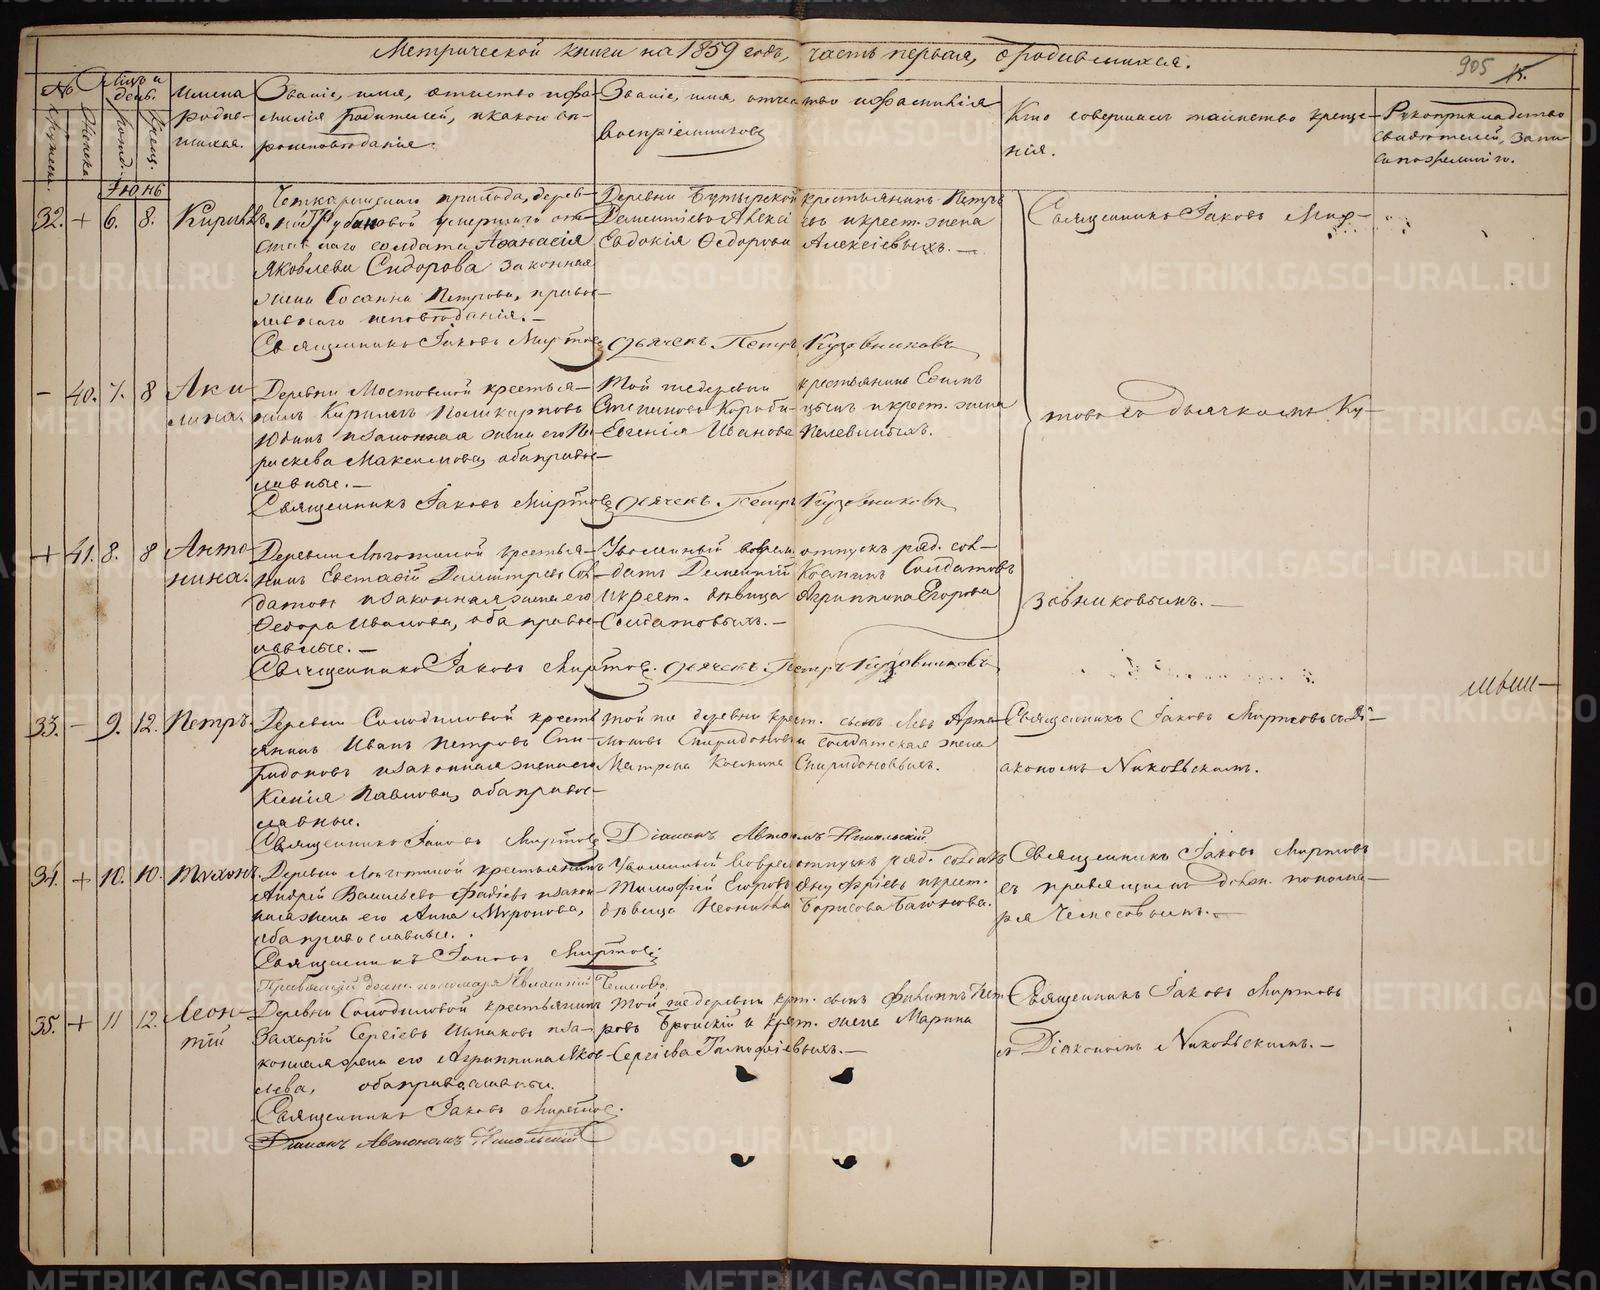 Метрической книги на 1859 годъ, часть первая, о родившихся.
905 15.
№
Мѣсяцъ и день.
Мужеск.
Женска.
Рожд.
Крещ.
Имена родив-
шихся.
Званіе, имя, отчество и фа-
милія родителей, и какого вѣ-
роисповѣданія.
Званіе, имя, отчество и фамилія
воспріемниковъ
Кто совершалъ таинство креще-
нія.
Рукоприкладство
свидѣтелей, запи-
си по желанію.
Іюнь
32. + 6. 8. Кириллъ.
Яковлева Сидорова законная
жена Сосанна Петрова, правос-
лавнаго исповѣданія. —
Священникъ Іаковъ Миртовъ
Деревни Бутырской крестьянинъ Петръ
Дементіевъ Алексіевъ и крест. жена
Евдокія Ѳедорова Алексіевыхъ. —
Дьячекъ Петръ Кузовниковъ
Священникъ Іаковъ Мир-
— 40. 7. 8 Аки-
лина.
Деревни Мостовской крестья-
нинъ Кириллъ Поликарповъ
Юдинъ и законная жена его Па-
раскева Максимова, оба правос-
лавные. —
Священникъ Іаковъ Миртовъ
Той же деревни крестьянинъ Ефимъ
Степановъ Коробицынъ и крест. жена
Евгенія Иванова Пелевиныхъ.
Дьячекъ Петръ Кузовниковъ
товъ съ дьячкомъ Ку-
+ 41. 8. 8 Анто-
нина.
Деревни крестья-
нинъ Евстафій Димитріевъ Сол-
датовъ и законная жена его
Ѳедора Иванова, оба правос-
лавные. —
Священникъ Іаковъ Миртовъ.
Уволенный во врем. отпускъ ряд. сол-
датъ Дементій Косминъ Солдатовъ
и крест. дѣвица Агриппина Егорова
Солдатовыхъ. —
Дьячекъ Петръ Кузовниковъ
зовниковымъ. —
33. — 9. 12. Петръ.
Деревни Солодиловой кресть-
янинъ Иванъ Петровъ Спи-
ридоновъ и законная жена его
Ксенія Павлова, оба правос-
лавные.
Священникъ Іаковъ Миртовъ
Той же деревни крест. сынъ Левъ Арта-
моновъ Спиридоновъ и солдатская жена
Матрена Космина Спиридоновыхъ.
Діаконъ Автономъ Никольскій
Священникъ Іаковъ Миртовъ съ Ді-
акономъ Никольскимъ.
34. + 10. 10. Тихонъ.
Андрей Васильевъ Фадѣевъ и закон-
ная жена его Анна Миронова,
оба православные.
Священникъ Іаковъ Миртовъ
Уволенный во врем. отпускъ ряд. солдатъ
Тимофей Егоровъ Онуфріевъ и крест.
дѣвица Неонилла Борисова Баженова.
Священникъ Іаковъ Миртовъ
съ правящимъ должн. понома-
ря Чемесовымъ. —
35. + 11 12. Леон-
тій
Деревни Солодиловой крестьянинъ
Захарій Сергіевъ и за-
конная жена его Агриппина Яков-
лева, оба православные.
Священникъ Іаковъ Миртовъ.
Діаконъ Автономъ Никольскій
Той же деревни крест. сынъ Филиппъ Пет-
ровъ и крест. жена Марина
Сергіева Тимофеевыхъ. —
Священникъ Іаковъ Миртовъ
съ Діакономъ Никольскимъ. —
METRIKI.GASO-URAL.RU